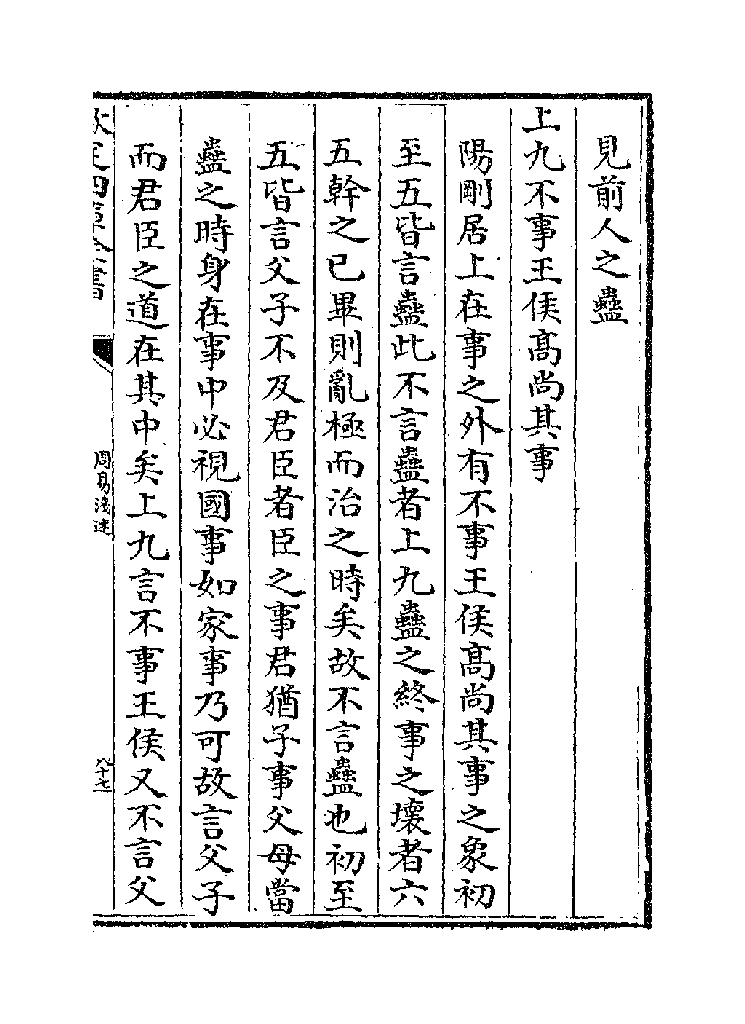 見前人之蠱
上九不事王侯髙尚其事
陽剛居上在事之外有不事王侯髙尚其事之象初
至五皆言蠱此不言蠱者上九蠱之終事之壞者六
五幹之已畢則亂極而治之時矣故不言蠱也初至
五皆言父子不及君臣者臣之事君猶子事父母當
蠱之時身在事中必視國事如家事乃可故言父子
而君臣之道在其中矣上九言不事王侯又不言父
欽定四庫全書
周易淺述
八十七